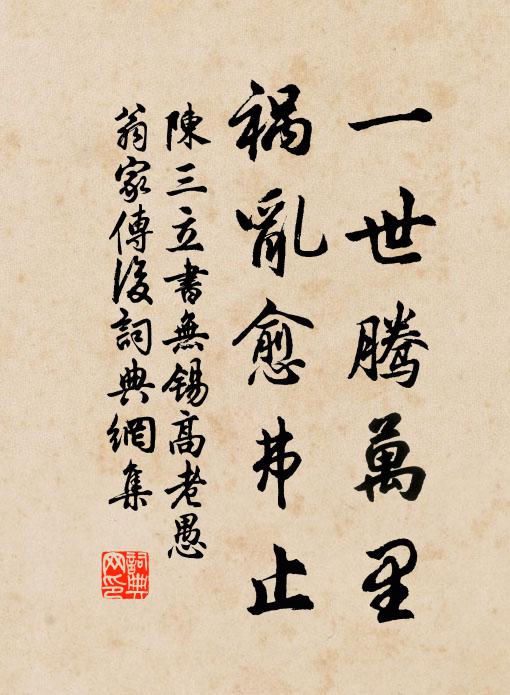 一世騰萬里
禍亂愈弗止
陳三立書無錫高老愚
翁家傳後詞典網集
詞典网印